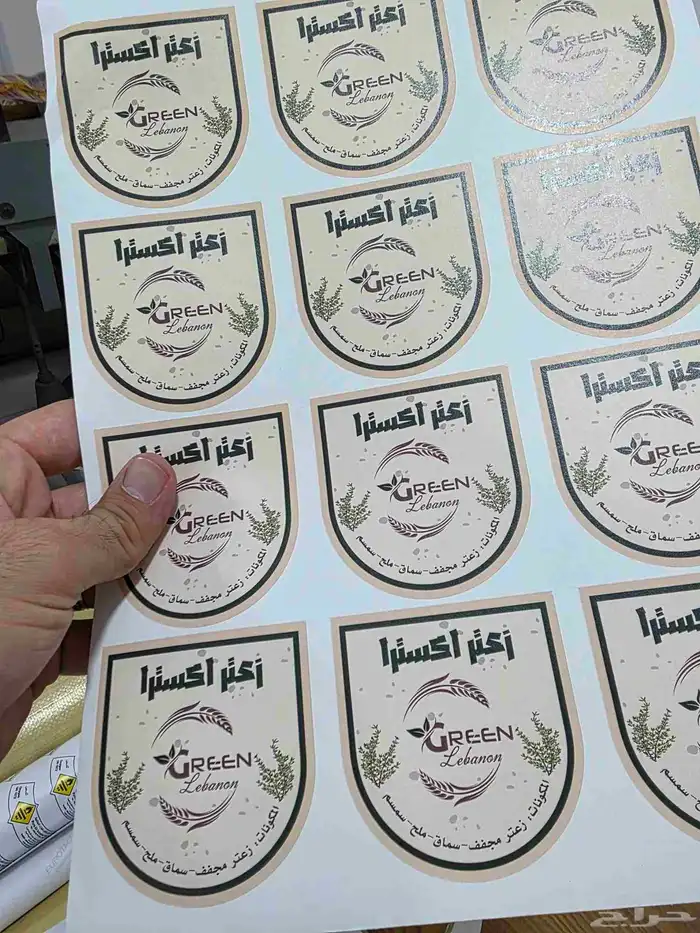 زعتر اكسترا
GREEN
Lebanon
المكونات: زعتر مجفف-سماق-ملح-سمسم
زعتر اكسترا
GREEN
Lebanon
المكونات: زعتر مجفف-سماق-ملح-سمسم
GREEN
زعتر اكسترا
GREEN
Lebanon
المكونات: زعتر مجفف-سماق-ملح-سمسم
زعتر اكسترا
GREEN
Lebanon
المكونات: زعتر مجفف-سماق-ملح-سمسم
GREEN
زعتر اكسترا
GREEN
Lebanon
المكونات: زعتر مجفف-سماق-ملح-سمسم
زعتر اكسترا
GREEN
Lebanon
المكونات: زعتر مجفف-سماق-ملح-سمسم
زعتر اكسترا
GREEN
Lebanon
المكونات: زعتر مجفف-سماق-ملح-سمسم
زعتر اكسترا
GREEN
Lebanon
المكونات: زعتر مجفف-سماق-ملح-سمسم
حراج